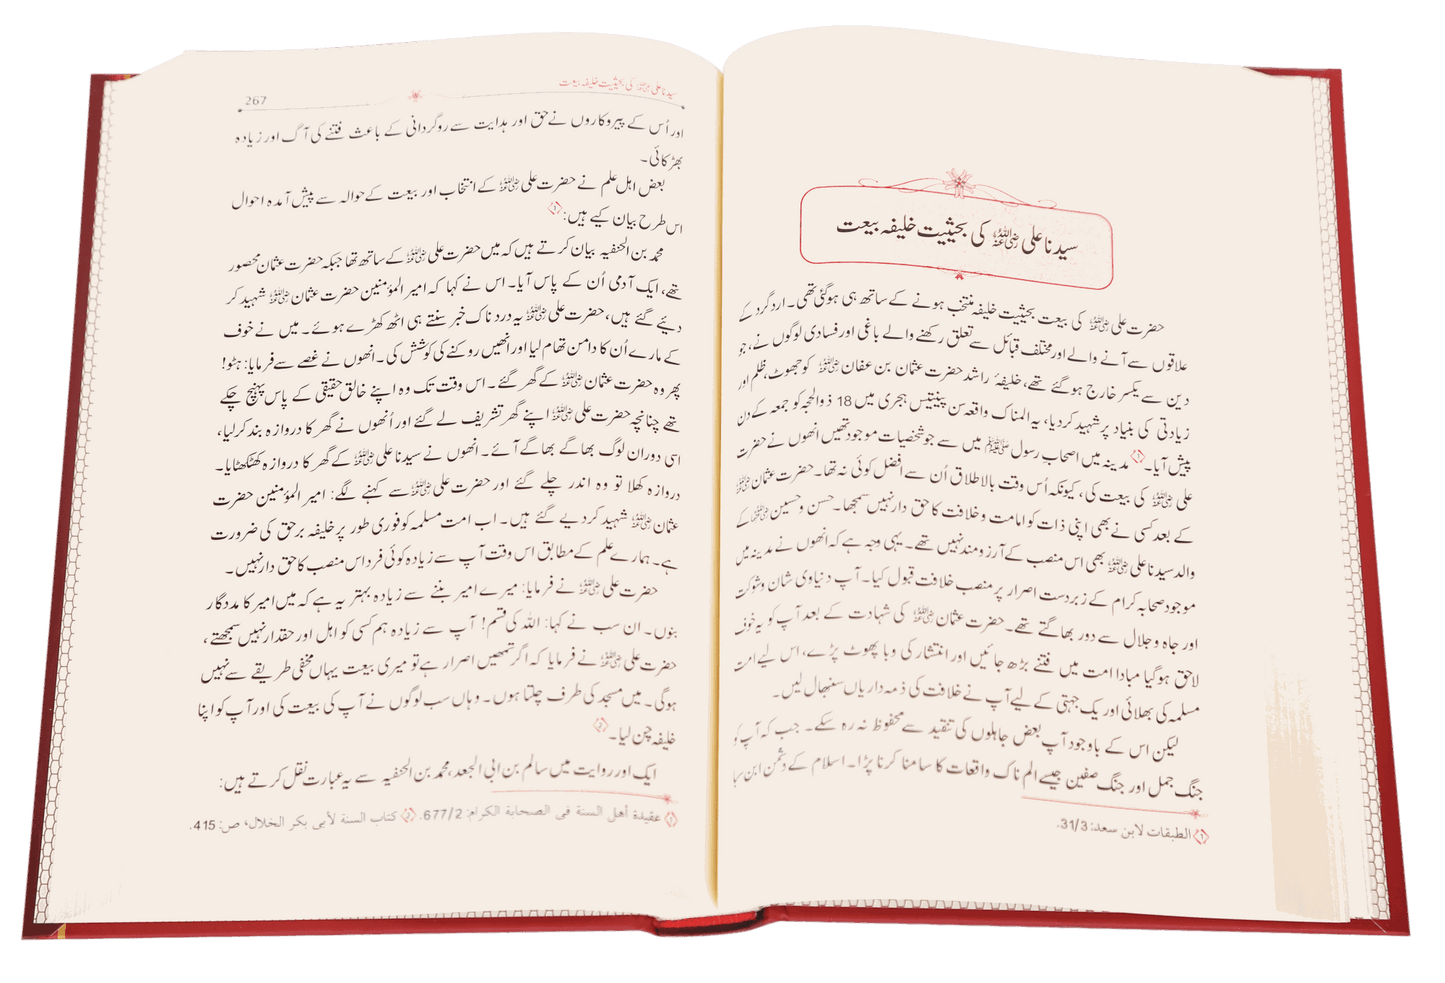 سیدنا علی رضی اللہ عنہ کی بحیثیت خلیفہ بیعت
حضرت علی رضی اللہ عنہ کی بیعت بحیثیت خلیفہ منتخب ہونے کے ساتھ ہی ہوگئی تھی۔ اردگرد کے
علاقوں سے آنے والے اور مختلف قبائل سے تعلق رکھنے والے باغی اور فسادی لوگوں نے، جو
دین سے یکسر خارج ہو گئے تھے، خلیفۂ راشد حضرت عثمان بن عفان رضی اللہ عنہ کو جھوٹ، ظلم اور
زیادتی کی بنیاد پر شہید کر دیا، یہ المناک واقعہ سن پینتیس ہجری میں 18 ذوالحجہ کو جمعہ کے دن
پیش آیا۔ ① مدینہ میں اصحابِ رسول ﷺ میں سے جو شخصیات موجود تھیں انھوں نے حضرت
علی رضی اللہ عنہ کی بیعت کی، کیونکہ اُس وقت بالاطلاق اُن سے افضل کوئی نہ تھا۔ حضرت عثمان رضی اللہ عنہ
کے بعد کسی نے بھی اپنی ذات کو امامت و خلافت کا حق دار نہیں سمجھا۔ حسن و حسین رضی اللہ عنہما کے
والد سیدنا علی رضی اللہ عنہ بھی اس منصب کے آرزومند نہیں تھے۔ یہی وجہ ہے کہ انھوں نے مدینہ میں
موجود صحابہ کرام کے زبردست اصرار پر منصب خلافت قبول کیا۔ آپ دنیاوی شان و شوکت
اور جاہ و جلال سے دور بھاگتے تھے۔ حضرت عثمان رضی اللہ عنہ کی شہادت کے بعد آپ کو یہ خوف
لاحق ہو گیا مبادا امت میں فتنے بڑھ جائیں اور انتشار کی وبا پھوٹ پڑے، اس لیے امت
مسلمہ کی بھلائی اور یک جہتی کے لیے آپ نے خلافت کی ذمہ داریاں سنبھال لیں۔
لیکن اس کے باوجود آپ بعض جاہلوں کی تنقید سے محفوظ نہ رہ سکے۔ جب کہ آپ کو
جنگ جمل اور جنگ صفین جیسے الم ناک واقعات کا سامنا کرنا پڑا۔ اسلام کے دشمن ابن سبا
① الطبقات لابن سعد: 31/3.
سیدنا علی رضی اللہ عنہ کی بحیثیت خلیفہ بیعت 267
اور اُس کے پیروکاروں نے حق اور ہدایت سے روگردانی کے باعث فتنے کی آگ اور زیادہ
بھڑکائی۔
بعض اہل علم نے حضرت علی رضی اللہ عنہ کے انتخاب اور بیعت کے حوالہ سے پیش آمدہ احوال
اس طرح بیان کیے ہیں: ①
محمد بن الحنفیہ بیان کرتے ہیں کہ میں حضرت علی رضی اللہ عنہ کے ساتھ تھا جبکہ حضرت عثمان محصور
تھے، ایک آدمی اُن کے پاس آیا۔ اس نے کہا کہ امیر المؤمنین حضرت عثمان رضی اللہ عنہ شہید کر
دیئے گئے ہیں، حضرت علی رضی اللہ عنہ یہ دردناک خبر سنتے ہی اٹھ کھڑے ہوئے۔ میں نے خوف
کے مارے اُن کا دامن تھام لیا اور انھیں روکنے کی کوشش کی۔ انھوں نے غصے سے فرمایا: ہٹو!
پھر وہ حضرت عثمان رضی اللہ عنہ کے گھر گئے۔ اس وقت تک وہ اپنے خالق حقیقی کے پاس پہنچ چکے
تھے چنانچہ حضرت علی رضی اللہ عنہ اپنے گھر تشریف لے گئے اور اُنھوں نے گھر کا دروازہ بند کر لیا،
اسی دوران لوگ بھاگے بھاگے آئے۔ انھوں نے سیدنا علی رضی اللہ عنہ کے گھر کا دروازہ کھٹکھٹایا۔
دروازہ کھلا تو وہ اندر چلے گئے اور حضرت علی رضی اللہ عنہ سے کہنے لگے: امیر المؤمنین حضرت
عثمان رضی اللہ عنہ شہید کر دیے گئے ہیں۔ اب امت مسلمہ کو فوری طور پر خلیفہ برحق کی ضرورت
ہے۔ ہمارے علم کے مطابق اس وقت آپ سے زیادہ کوئی فرد اس منصب کا حق دار نہیں۔
حضرت علی رضی اللہ عنہ نے فرمایا: میرے امیر بننے سے زیادہ بہتر یہ ہے کہ میں امیر کا مددگار
بنوں۔ ان سب نے کہا: اللہ کی قسم! آپ سے زیادہ ہم کسی کو اہل اور حقدار نہیں سمجھتے،
حضرت علی رضی اللہ عنہ نے فرمایا کہ اگر تمھیں اصرار ہے تو میری بیعت یہاں مخفی طریقے سے نہیں
ہوگی۔ میں مسجد کی طرف چلتا ہوں۔ وہاں سب لوگوں نے آپ کی بیعت کی اور آپ کو اپنا
خلیفہ چن لیا۔ ②
ایک اور روایت میں سالم بن ابی الجعد، محمد بن الحنفیہ سے یہ عبارت نقل کرتے ہیں:
① عقيدة أهل السنة في الصحابة الكرام: 677/2. ② كتاب السنة لأبي بكر الخلال، ص: 415.